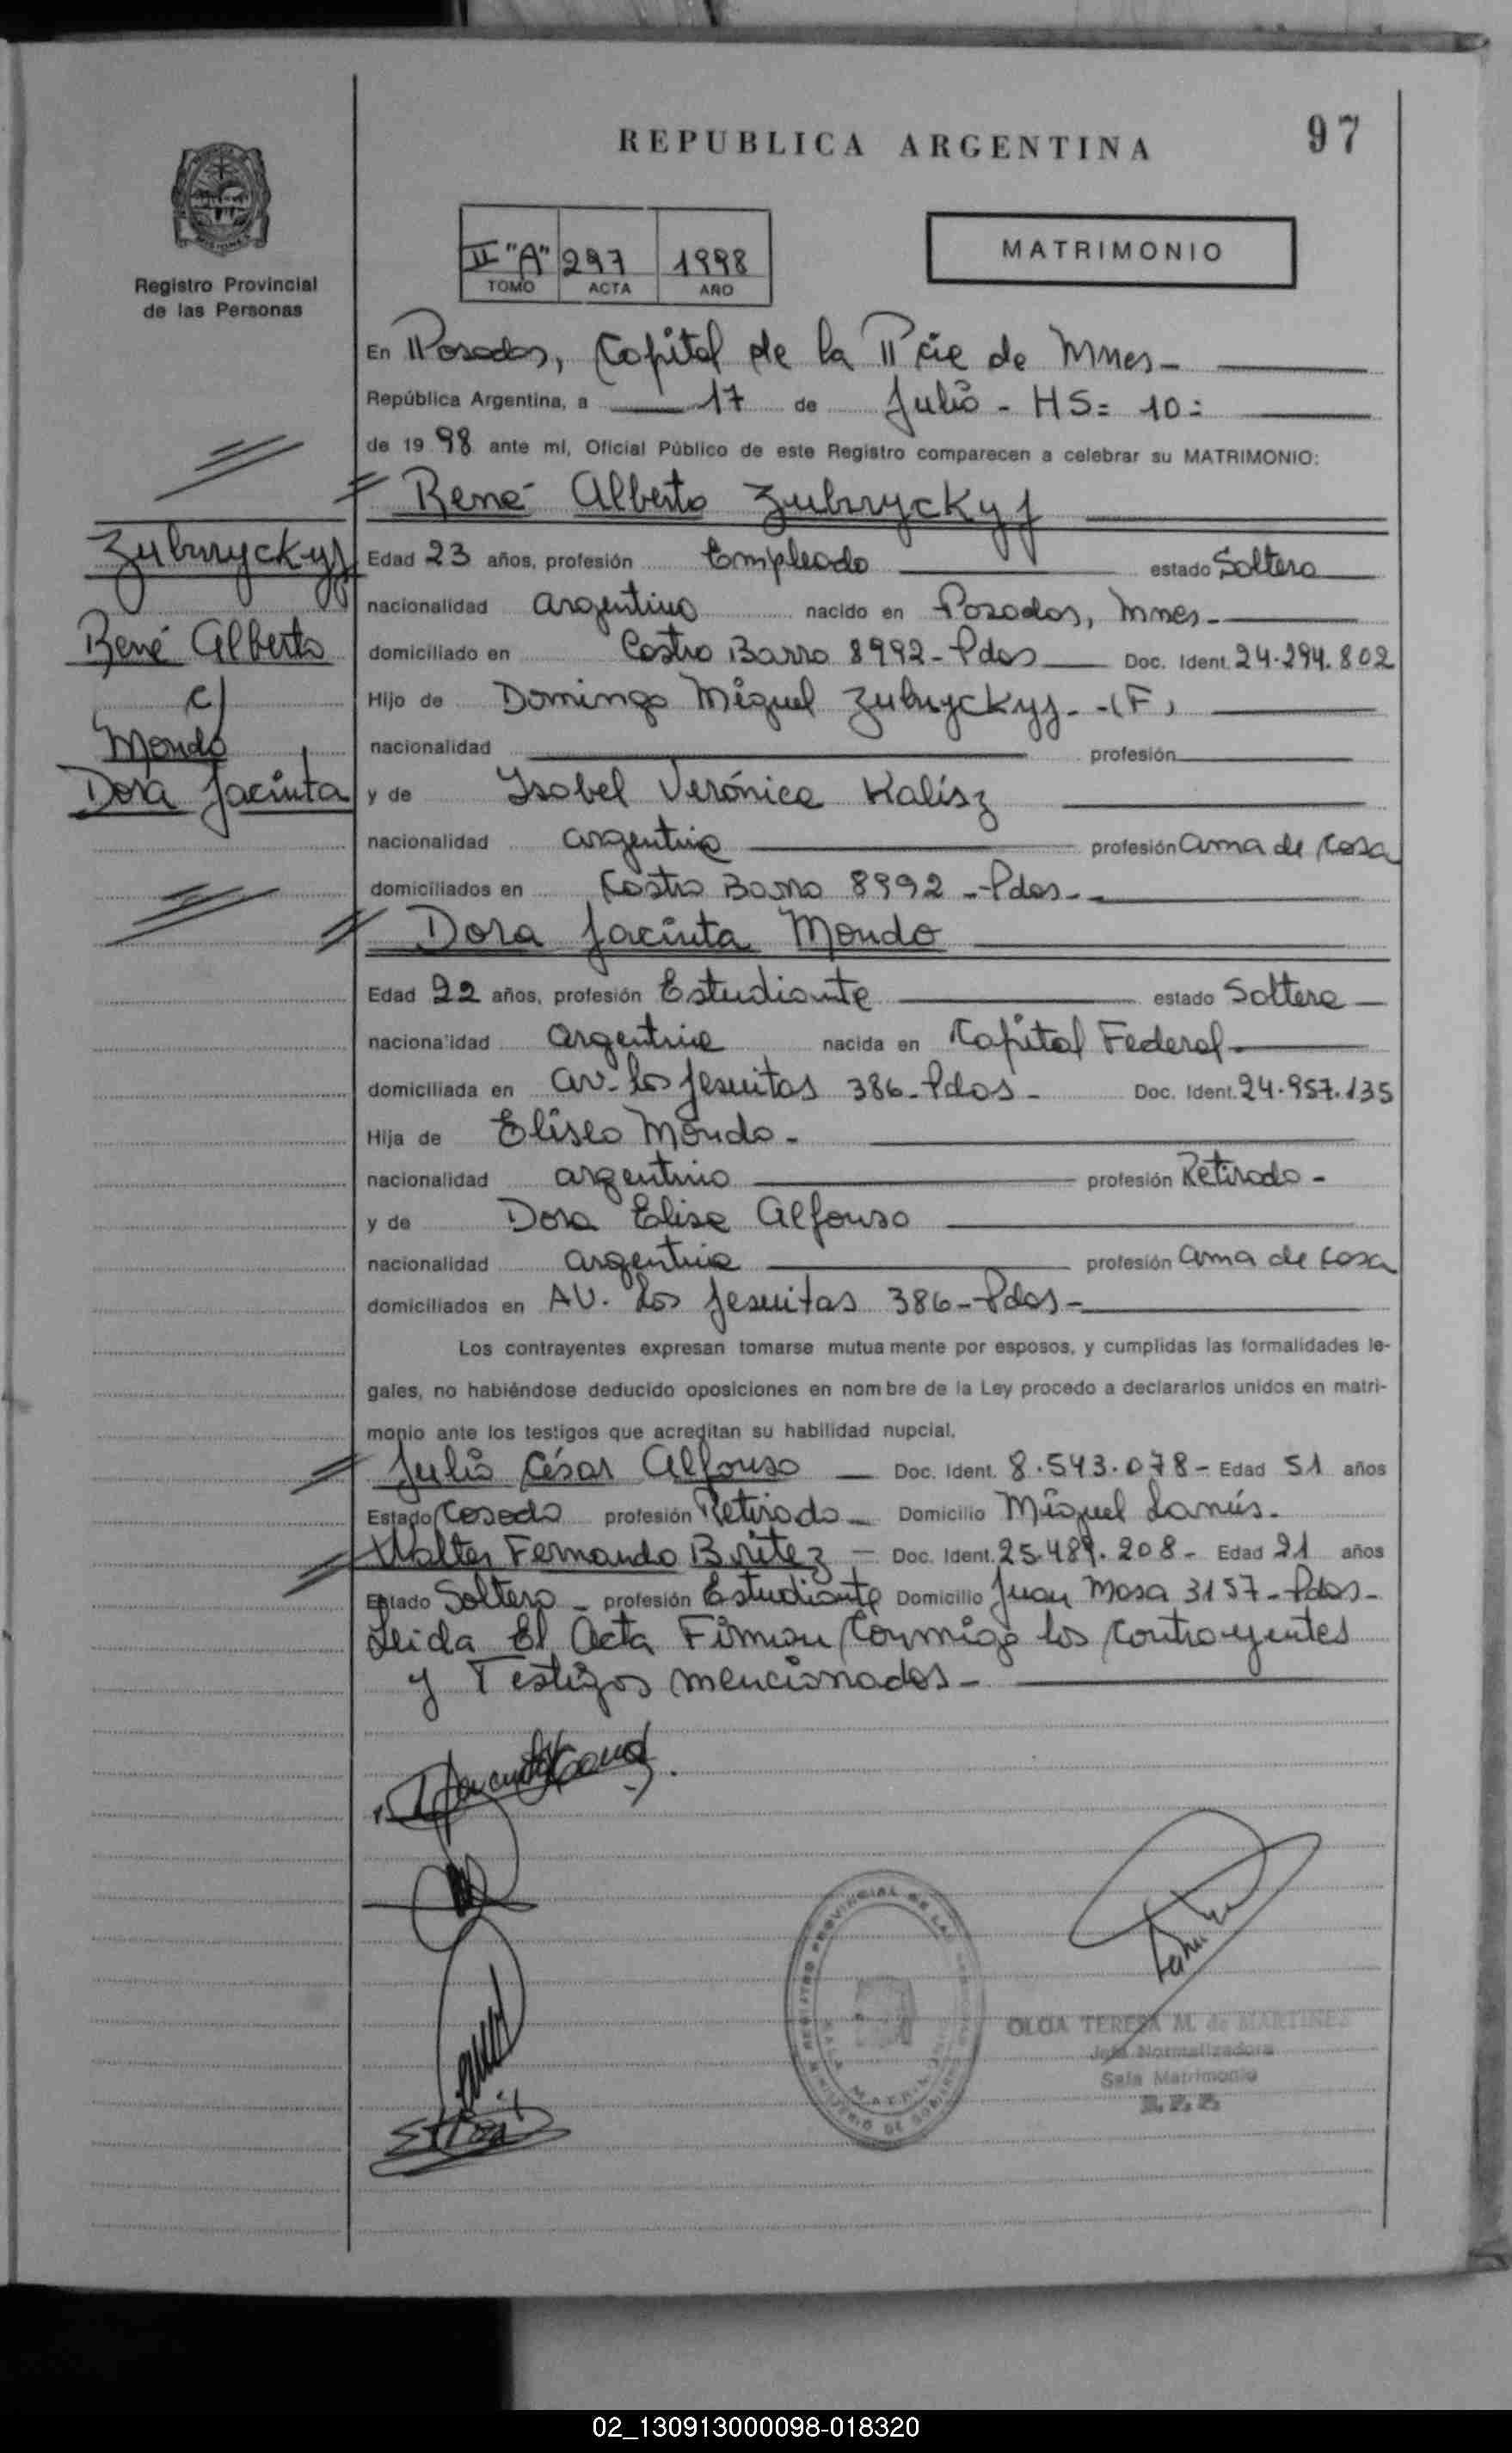 REPUBLICA ARGENTINA
97
Registro Provincial
de las Personas
II "A" 297 1998
TOMO ACTA AÑO
MATRIMONIO
En Posadas, Capital de la Pcia de Mnes-
República Argentina, a 17 de Julio - HS= 10=
de 1998 ante mí, Oficial Público de este Registro comparecen a celebrar su MATRIMONIO:
René Alberto Zubryckyj
Zubryckyj
René Alberto
c/
Mondo
Dora Jacinta
Edad 23 años, profesión Empleado estado Soltero
nacionalidad argentino nacido en Posadas, Mnes-
domiciliado en Castro Barro 8992- Pdas Doc. Ident. 24.294.802
Hijo de Domingo Miguel Zubryckyj- -(F)
nacionalidad profesión
y de Isabel Verónica Kalisz
nacionalidad argentina profesión ama de casa
domiciliados en Castro Barro 8992 - Pdas-
Dora Jacinta Mondo
Edad 22 años, profesión Estudiante estado Soltera
nacionalidad argentina nacida en Capital Federal-
domiciliada en av- los Jesuitas 386- Pdas- Doc. Ident. 24.957.135
Hija de Eliseo Mondo-
nacionalidad argentino profesión Retirado-
y de Dora Elisa Alfonso
nacionalidad argentina profesión ama de casa
domiciliados en AV. Los Jesuitas 386- Pdas-
Los contrayentes expresan tomarse mutua mente por esposos, y cumplidas las formalidades le-
gales, no habiéndose deducido oposiciones en nombre de la Ley procedo a declararlos unidos en matri-
monio ante los testigos que acreditan su habilidad nupcial.
Julio César Alfonso Doc. Ident. 8.543.078- Edad 51 años
Estado Casado profesión Retirado Domicilio Miguel Lanús-
Walter Fernando Britez - Doc. Ident. 25.489.208- Edad 21 años
Estado Soltero - profesión Estudiante Domicilio Juan Mosa 3157- Pdas-
Leida El Acta Firman Conmigo los Contrayentes
y Testigos mencionados-
REGISTRO PROVINCIAL DE LAS
MINISTERIO DE GOBIERNO
OLGA TERESA M. de MARTINEZ
Jefa Normalizadora
Sala Matrimonio
02_130913000098-018320